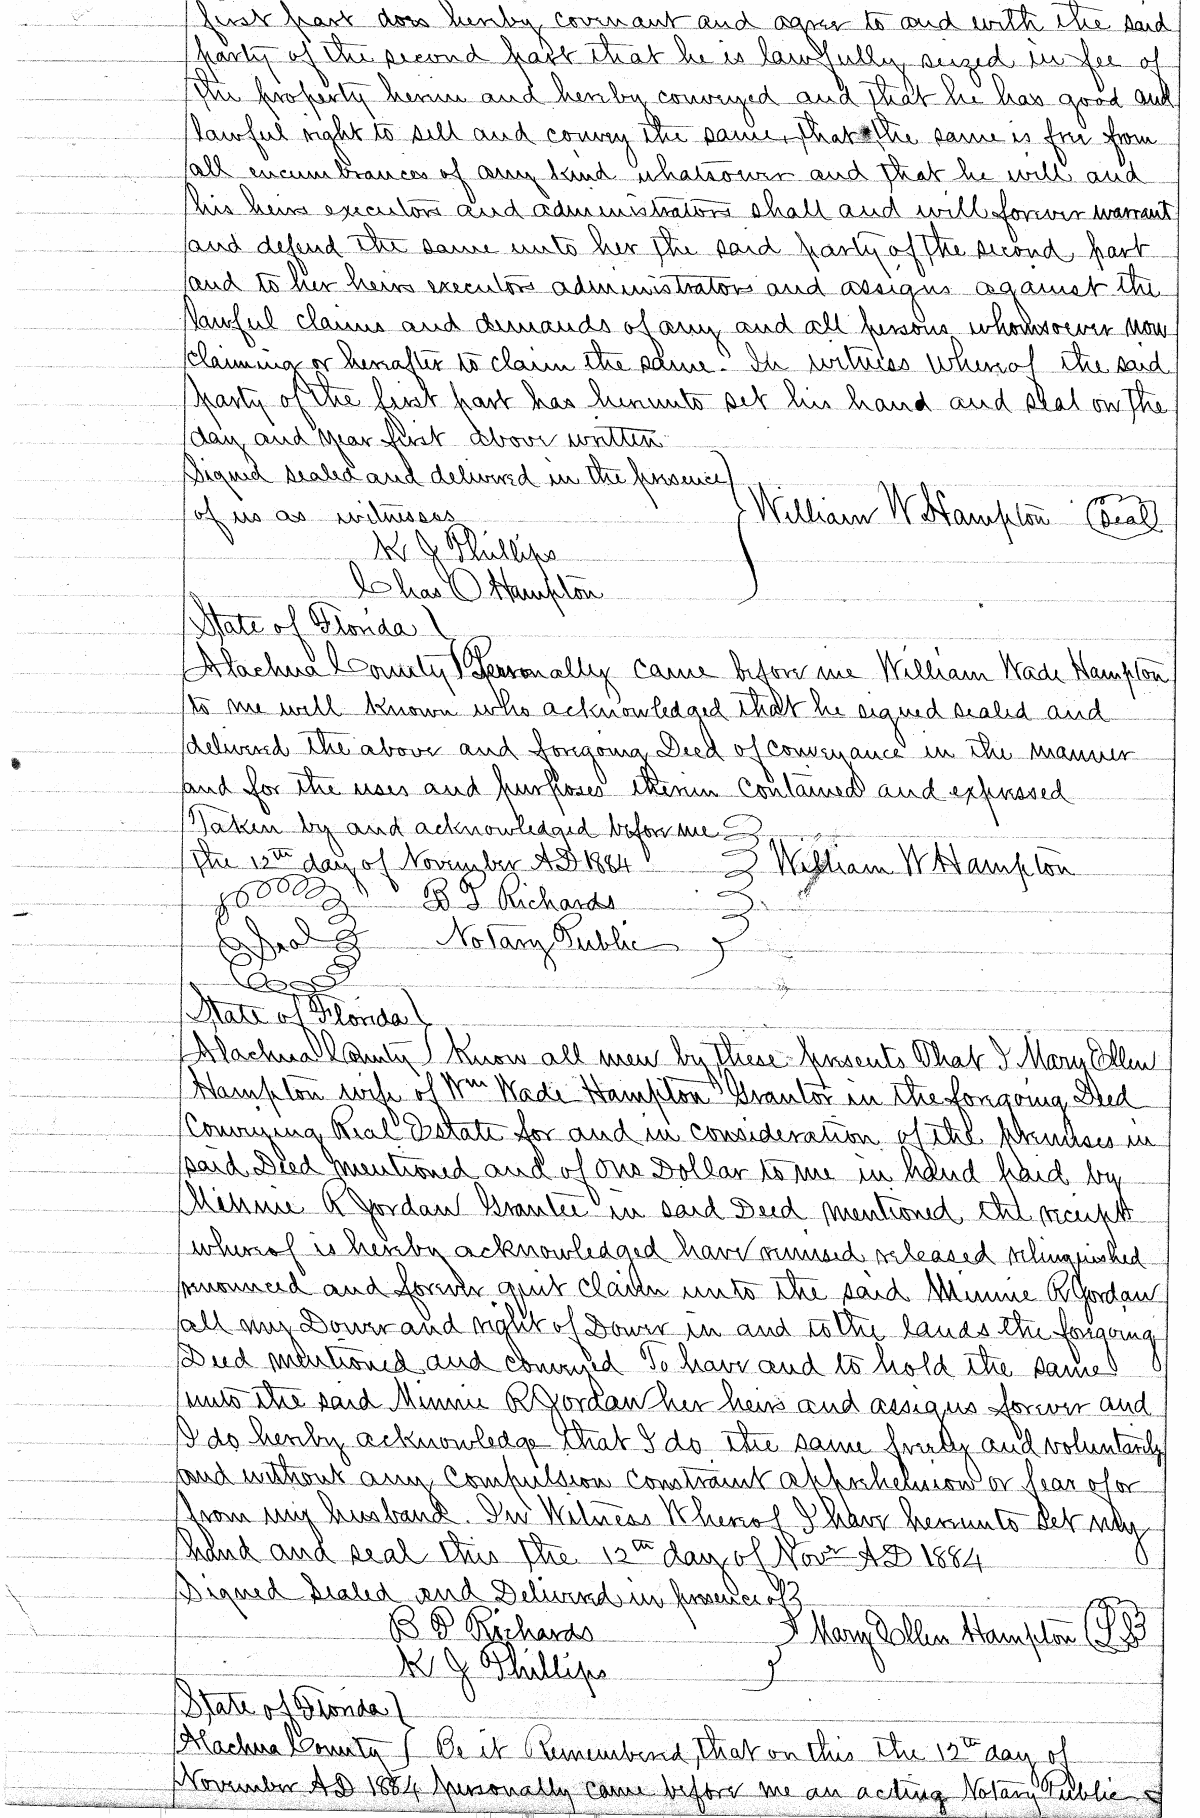 first part does hereby covenant and agree to and with the said
party of the second part that he is lawfully seized in fee of
the property herein and hereby conveyed and that he has good and
lawful right to sell and convey the same, that the same is free from
all encumbrances of any kind whatsoever and that he will and
his heirs executors and administrators shall and will forever warrant
and defend the same unto her the said party of the second part
and to her heirs executors administrators and assigns against the
lawful claims and demands of any and all persons whomsoever now
claiming or hereafter to claim the same. In witness whereof the said
party of the first part has hereunto set his hand and seal on the
day and year first above written
Signed sealed and delivered in the presence
of us as witnesses William W Hampton (Seal)
K J Phillips
Chas O Hampton
State of Florida
Alachua County Personally came before me William Wade Hampton
to me well known who acknowledged that he signed sealed and
delivered the above and foregoing Deed of conveyance in the manner
and for the uses and purposes therein contained and expressed
Taken by and acknowledged before me
the 12th day of November AD 1884 William W Hampton
B P Richards
Seal Notary Public
State of Florida
Alachua County Know all men by these presents That I Mary Ellen
Hampton wife of Wm Wade Hampton Grantor in the foregoing Deed
Conveying Real Estate for and in consideration of the premises in
said Deed mentioned and of One Dollar to me in hand paid by
Minnie R Jordan Grantee in said Deed mentioned the receipt
whereof is hereby acknowledged have remised released relinquished
renounced and forever quit claim unto the said Minnie R Jordan
all my Dower and right of Dower in and to the lands the foregoing
Deed mentioned and conveyed To have and to hold the same
unto the said Minnie R Jordan her heirs and assigns forever and
I do hereby acknowledge that I do the same freely and voluntarily
and without any Compulsion constraint apprehension or fear of or
from my husband. In Witness Whereof I have hereunto set my
hand and seal this the 12th day of Novr AD 1884
Signed Sealed and Delivered in presence of
B P Richards Mary Ellen Hampton (LS)
K J Phillips
State of Florida
Alachua County Be it Remembered, that on this the 12th day of
November AD 1884 personally came before me an acting Notary Public